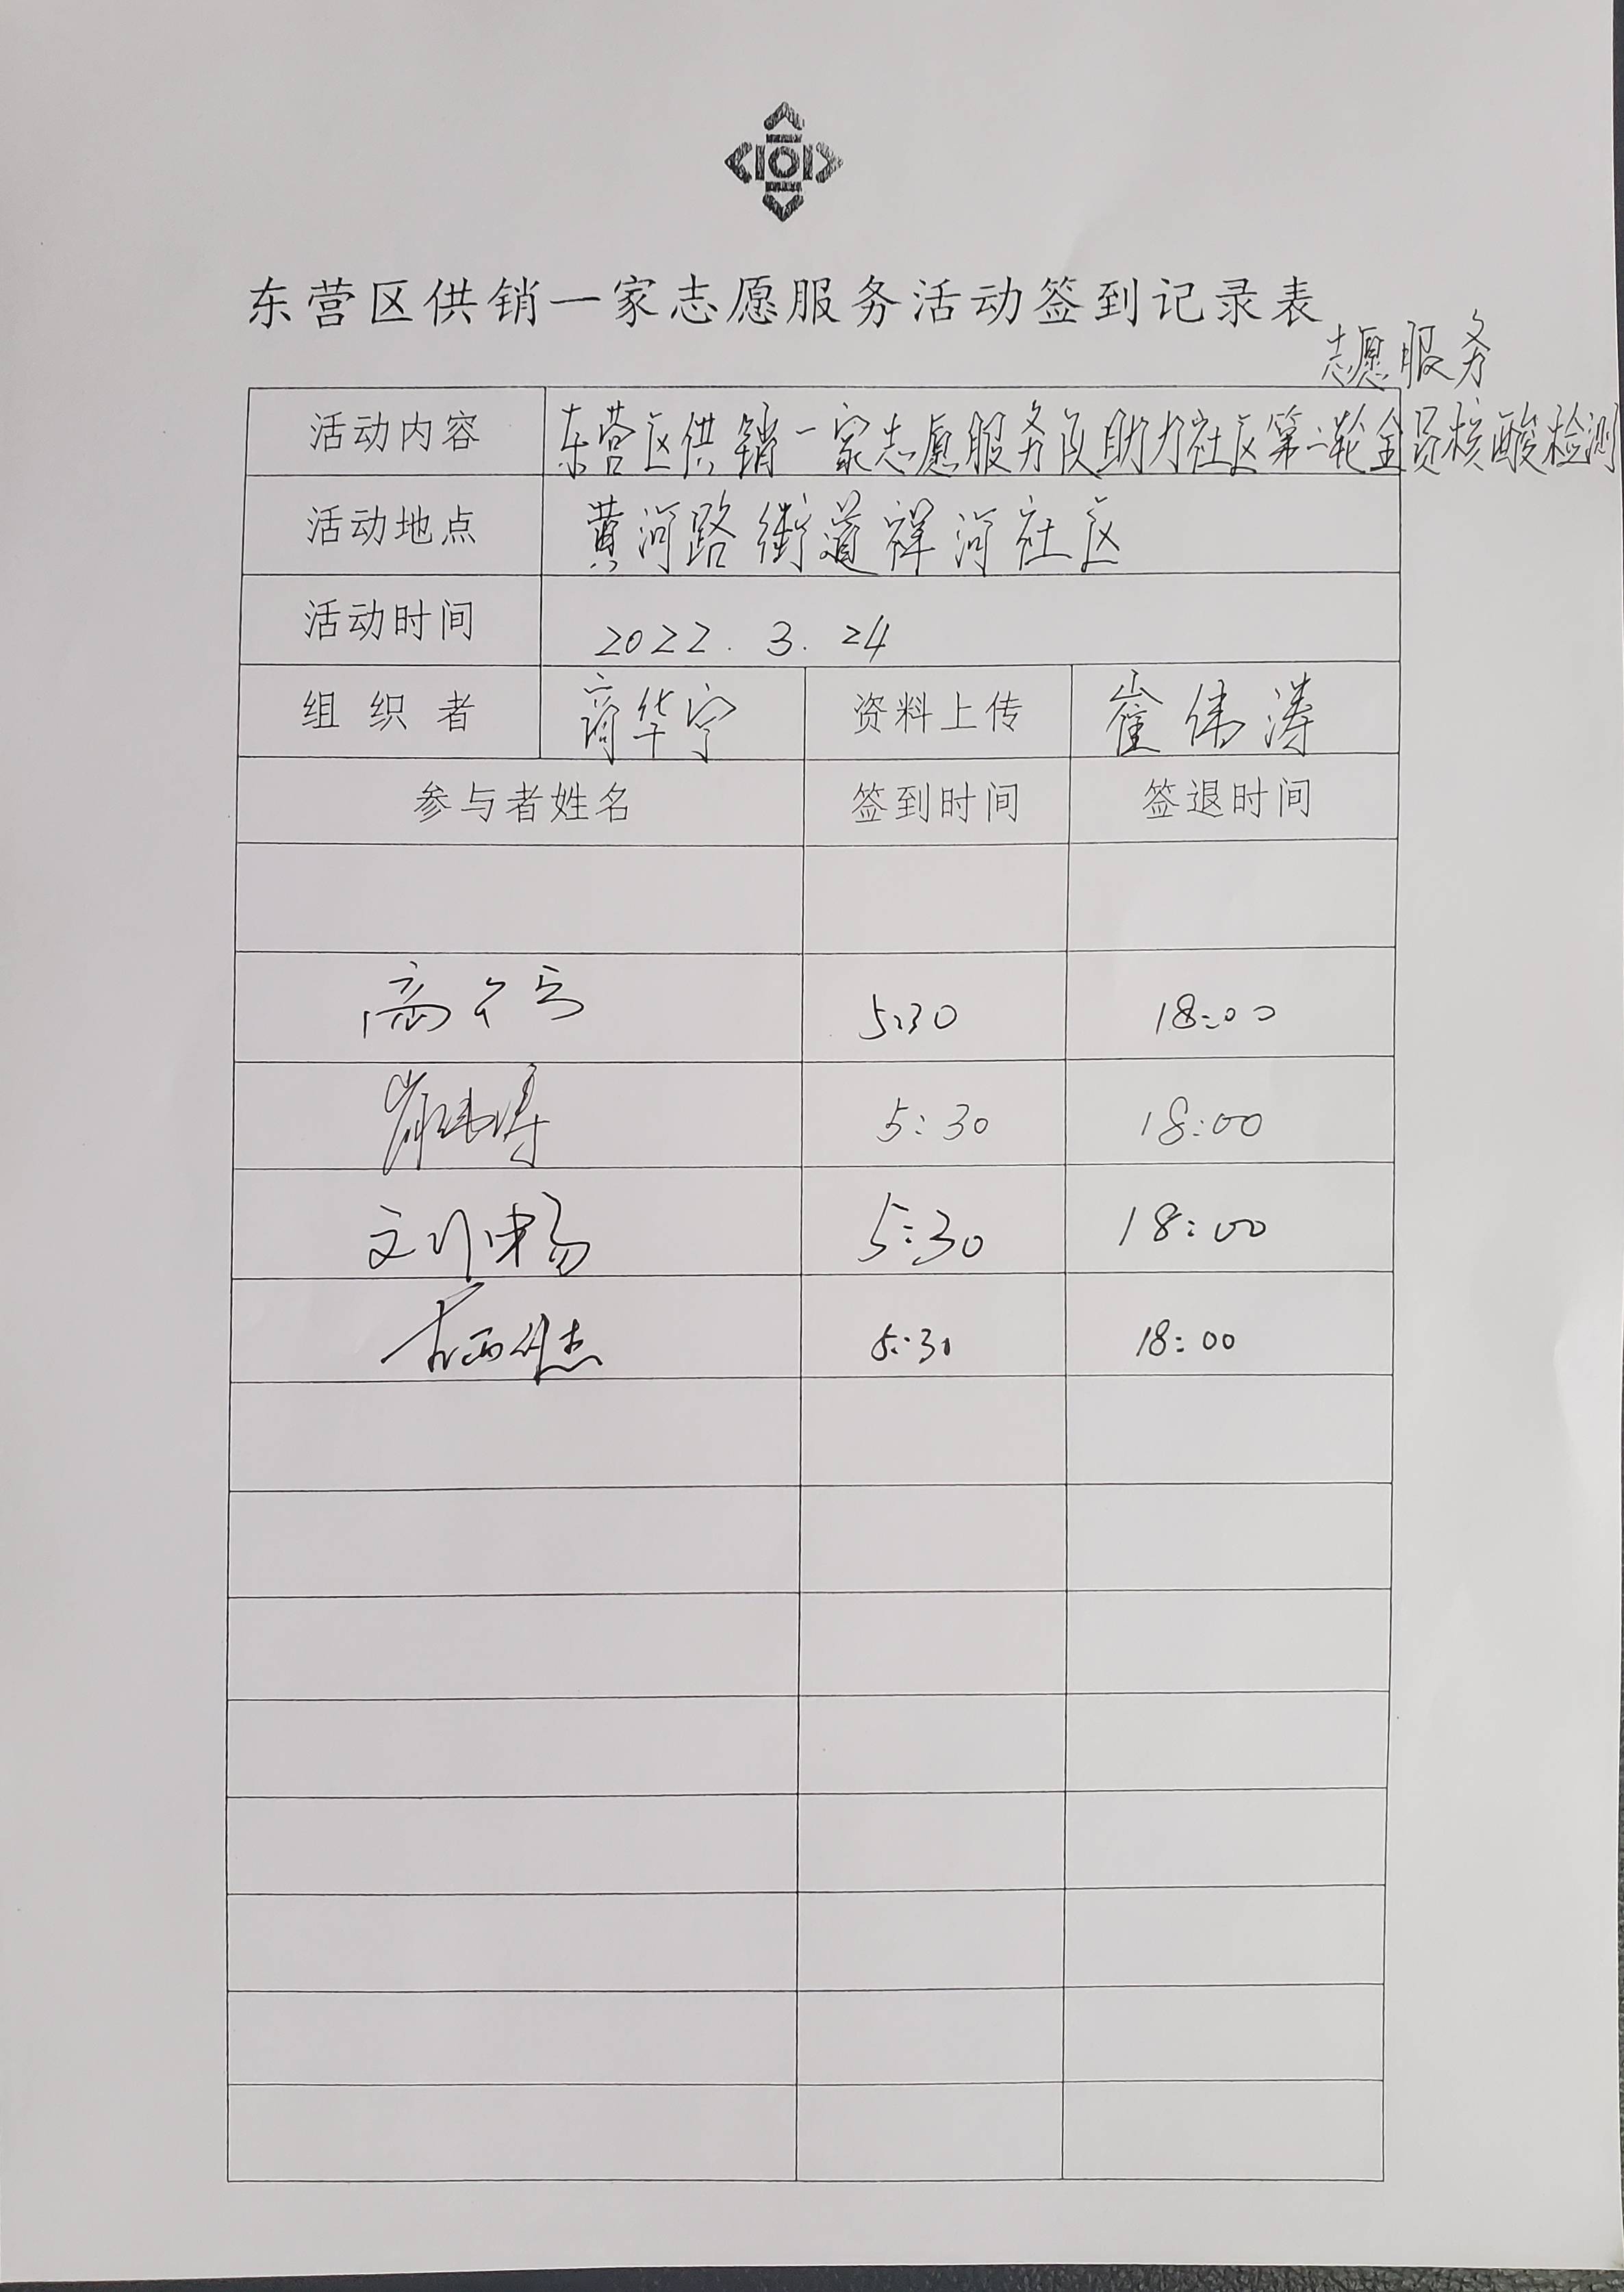 东营区供销一家志愿服务活动签到记录表
志愿服务
活动内容 东营区供销一家志愿服务队助力社区第二轮全员核酸检测
活动地点 黄河路街道祥河社区
活动时间 2022.3.24
组织者 商华宁 资料上传 崔伟涛
参与者姓名 签到时间 签退时间
5:30 18:00
崔伟涛 5:30 18:00
刘畅 5:30 18:00
5:30 18:00